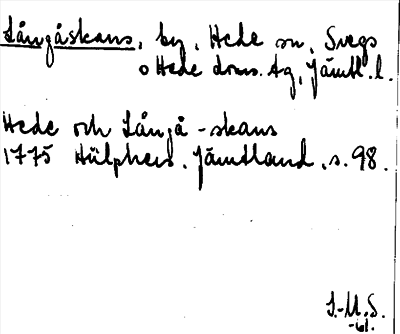 Långåskans, by, Hede sn, Svegs
o Hede doms. tg, Jämtl. l.
Hede och Långå-skans
1775 Hülphers. Jämtland, s. 98.
I.-M.S.
-61.